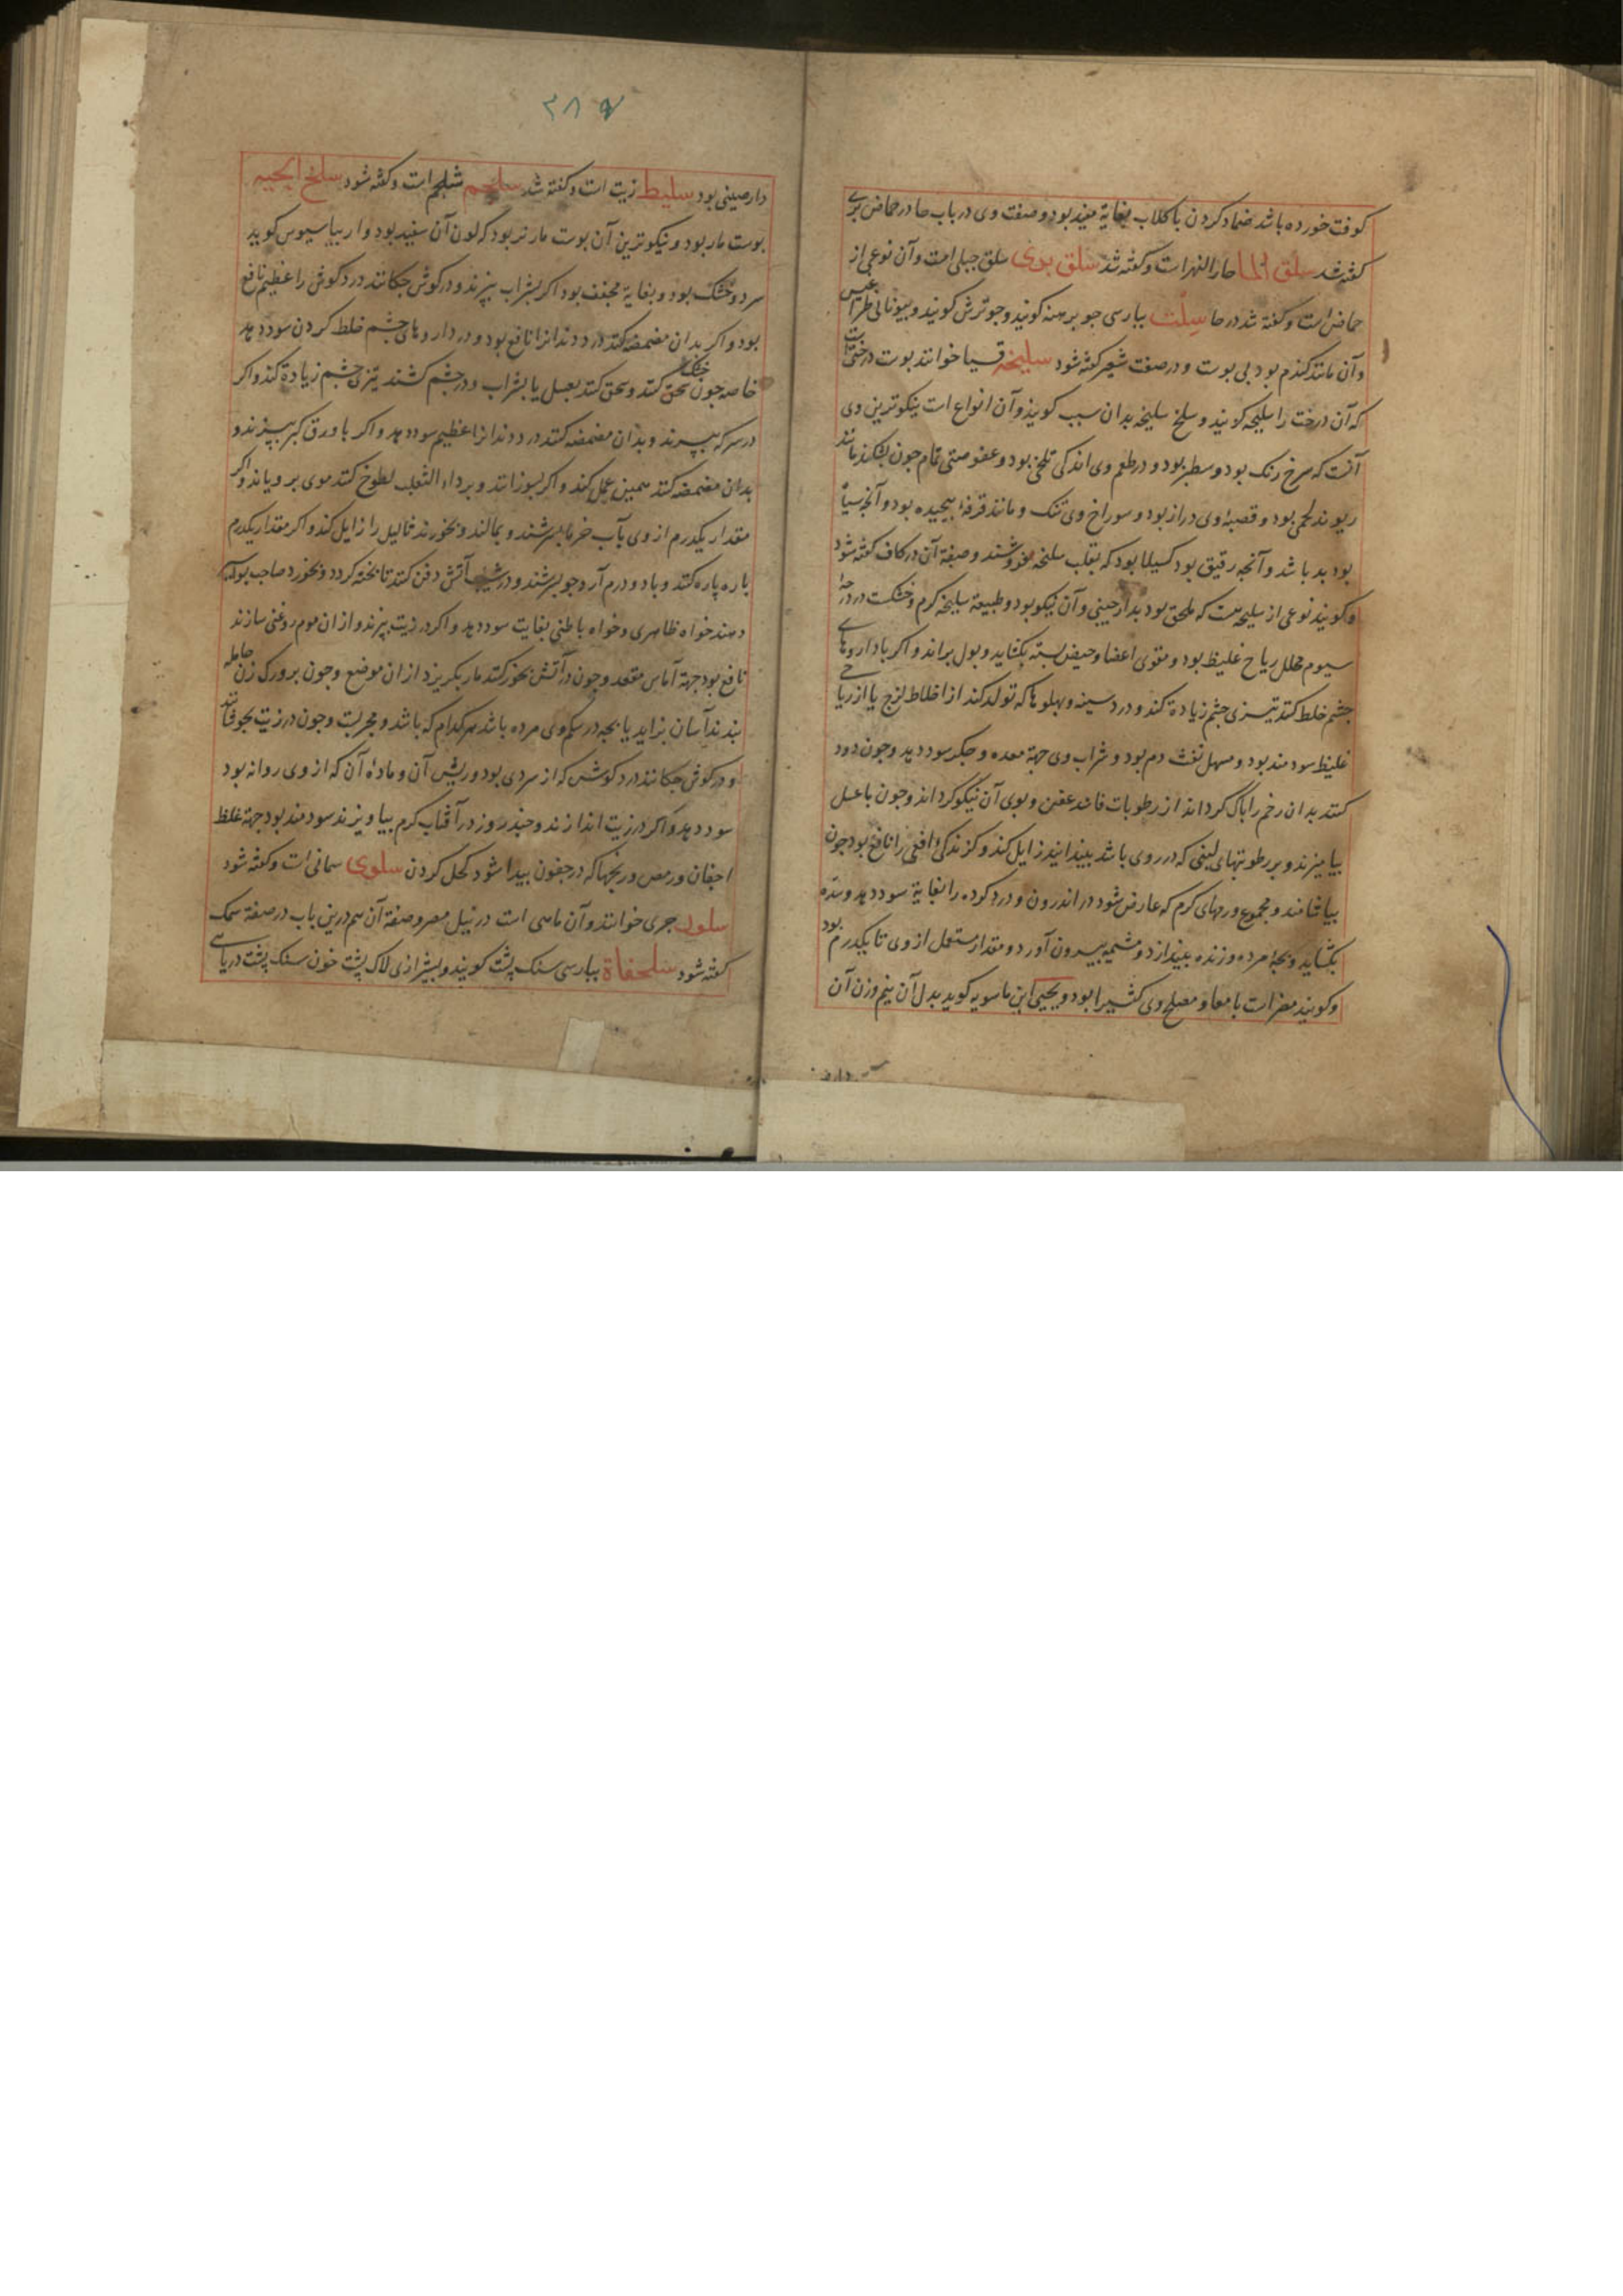 کوفت خورده باشد ضماد کردن با کلاب بغایة مفید بود و صفت وی در باب حا در حماض بری
کفته شد سلق الما حار النهر است وکفته شد سلق بری سلق جبلی است وآن نوعی از
حماض است وکفته شد در حا سلت ببارسی جو برهنه کویند و جو ترش کویند و بیونانی
وآن مانند کندم بود بی بوست و در صفت شعیر کفته شود سلیخه قسیا خوانند بوست درختی است
که آن درخت را سلیخه کویند و سلخ سلیخه بدان سبب کویند وآن انواع است نیکوترین وی
آنست که سرخ رنک بود و سطبر بود و در طعم وی اندکی تلخی بود و عفوصتی تمام جون بشکنند مانند
ریوند لحمی بود و قصبۀ وی دراز بود و سوراخ وی تنک و مانند قرفه بیجیده بود و آنجه سیاه
بود بد باشد و آنجه رقیق بود کسیلا بود که بقلب سلیخه فروشند و صفة آن در کاف کفته شود
وکویند نوعی از سلیخه هست که ملحق بود بدارجینی و آن نیکو بود و طبیعة سلیخه کرم و خشکست در درجۀ
سیوم محلل ریاح غلیظ بود و مقوی اعضا و حیض بسته بکشاید و بول براند و اکر با داروهای
جشم خلط کنند تیزی جشم زیادة کند و درد سینه و بهلوها که تولد کند از اخلاط لزج یا از ریاح
غلیظ سودمند بود و مسهل نفث دم بود و شراب وی جهة معده و جکر سود دهد و جون دود
کنند بدان رحم را باک کرداند از رطوبات فاسد عفن و بوی آن نیکو کرداند و جون با عسل
بیامیزند و بر رطوبتهای لبنی که در روی باشد بیندایند زایل کند و کزندکی افعی را نافع بود جون
بیاشامند و مجموع ورمهای کرم که عارض شود در اندرون و درد کرده را بغایة سود دهد و سده
بکشاید و بجۀ مرده و زنده بیندازد و مشیمه بیرون آورد و مقدار مستعمل از وی تا یکدرم بود
وکویند مضر است بامعا و مصلح وی کثیرا بود و یحیی ابن ماسویه کوید بدل آن نیم وزن آن
۲۸۷
دارصینی بود سلیط زیت است وکفته شد سلجم شلجم است وکفته شود سلخ الحیه
بوست مار بود و نیکوترین آن بوست مار نر بود که لون آن سفید بود و اریباسیوس کوید
سرد و خشک بود و بغایة مجفف بود اکر بشراب ببزند و در کوش جکانند درد کوش را عظیم نافع
بود و اکر بدان مضمضه کنند درد دندانرا نافع بود و در داروهای جشم خلط کردن سود دهد
خاصه جون خشک سحق کنند و سحق کنند بعسل یا بشراب و در جشم کشند تیزی جشم زیادة کند و اکر
در سرکه ببزند و بدان مضمضه کنند درد دندانرا عظیم سود دهد و اکر با ورق کبر ببزند و
بدان مضمضه کنند همین عمل کند و اکر بسوزانند و بر داء الثعلب لطوخ کنند موی برویاند و اکر
مقدار یکدرم از وی بآب خرما بسرشند و بمالند و بخورند ثالیل را زایل کند و اکر مقدار یکدرم
پاره پاره کنند و با دو درم آرد جو بسرشند و در شیب آتش دفن کنند تا بخته کردد و بخورد صاحب بواسیر
دهند خواه ظاهری و خواه باطنی بغایت سود دهد و اکر در زیت ببزند و از ان موم روغنی سازند
نافع بود جهة آماس مقعد و جون در آتش بخور کنند مار بکریزد از ان موضع و جون بر ورک زن حامله
بندند آسان بزاید یا بجه در شکم وی مرده باشد هر کدام که باشد و مجربست و جون در زیت بجوشانند
و در کوش جکانند درد کوش که از سردی بود و ریش آن و مادۀ آن که از وی روانه بود
سود دهد و اکر در زیت اندازند و جند روز در آفتاب کرم بیاویزند سودمند بود جهة غلظ
اجفان و رمص و ریجها که در جفون بیدا شود کحل کردن سلوی سمانی است وکفته شود
سلور جری خوانند و آن ماهی است در نیل مصر و صفة آن هم درین باب در صفة سمک
کفته شود سلحفاة ببارسی سنک پشت کویند و بشیرازی لاک پشت خون سنک پشت دریایی